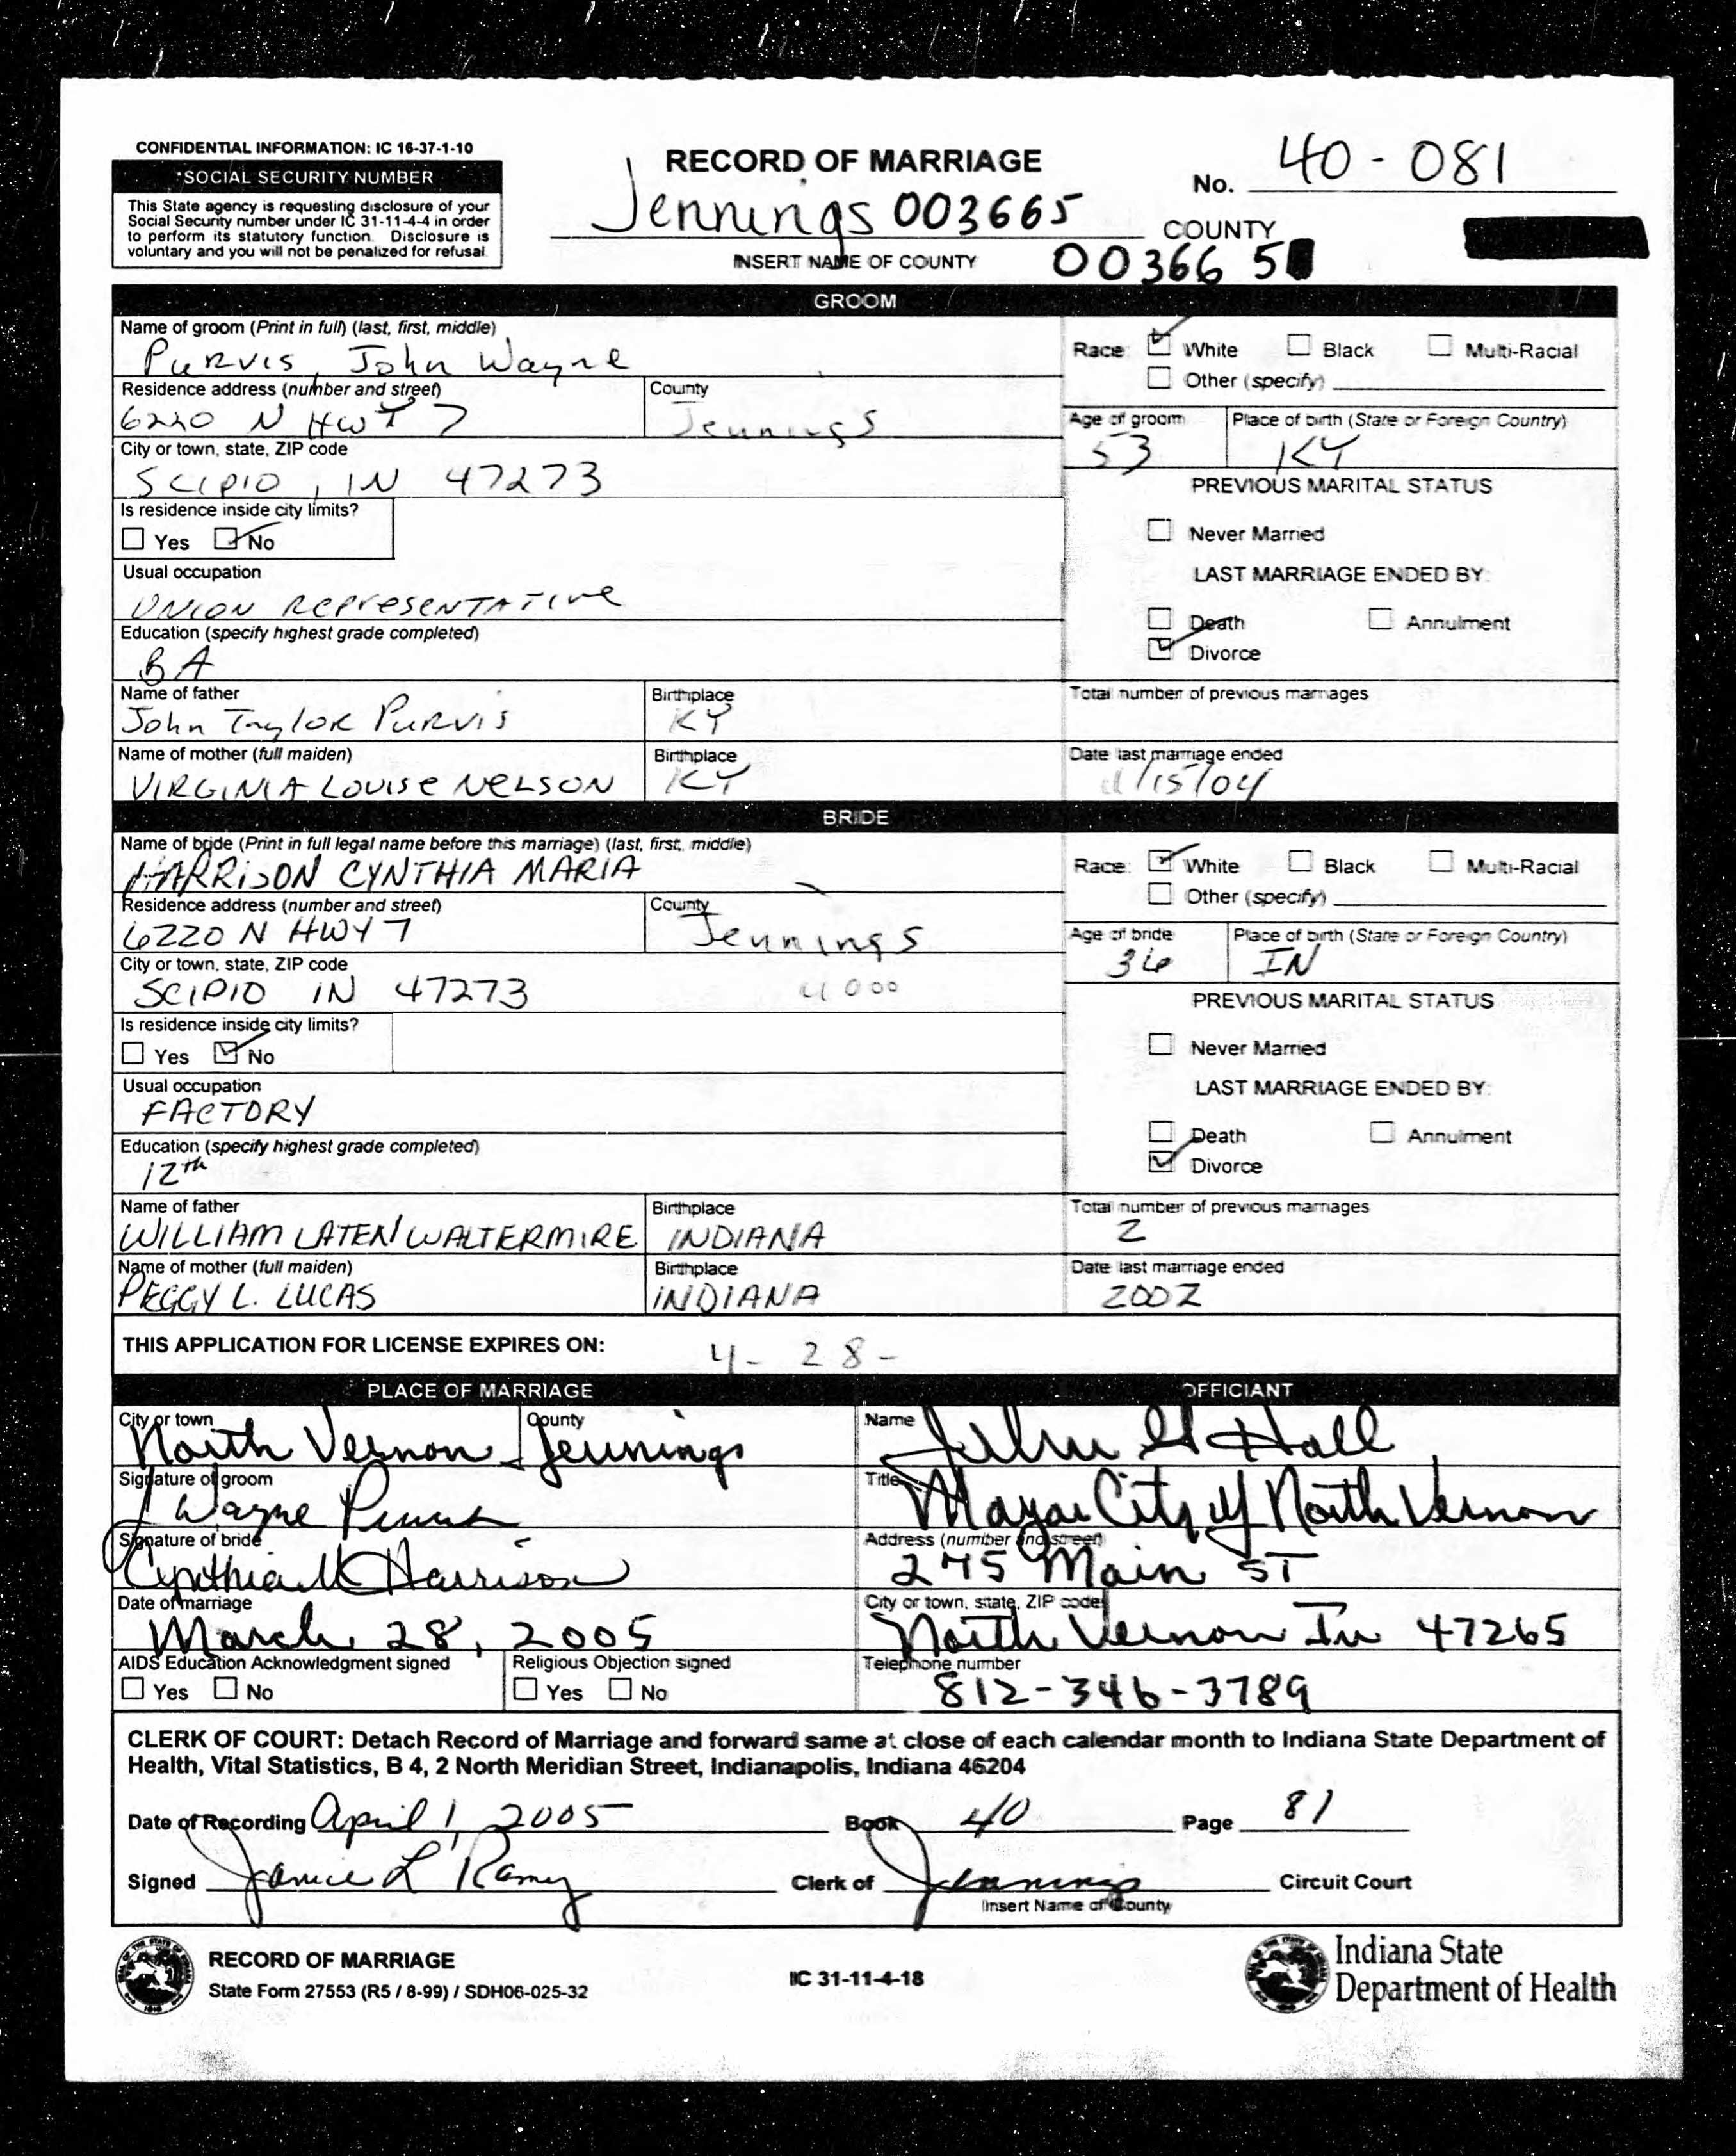 CONFIDENTIAL INFORMATION: IC 16-37-1-10
*SOCIAL SECURITY NUMBER
This State agency is requesting disclosure of your
Social Security number under IC 31-11-4-4 in order
to perform its statutory function. Disclosure is
voluntary and you will not be penalized for refusal.
RECORD OF MARRIAGE
No. 40-081
Jennings 003665 COUNTY
INSERT NAME OF COUNTY
003665
GROOM
Name of groom (Print in full) (last, first, middle)
Purvis, John Wayne
Race: White Black Multi-Racial
Other (specify)
Residence address (number and street)
6220 N HWY 7
County
Jennings
Age of groom
53
Place of birth (State or Foreign Country)
KY
City or town, state, ZIP code
SCIPIO, IN 47273
PREVIOUS MARITAL STATUS
Is residence inside city limits?
Yes No
Never Married
Usual occupation
UNION Representative
LAST MARRIAGE ENDED BY:
Death Annulment
Divorce
Education (specify highest grade completed)
BA
Name of father
John Taylor Purvis
Birthplace
KY
Total number of previous marriages
Name of mother (full maiden)
VIRGINIA LOUISE NELSON
Birthplace
KY
Date last marriage ended
/15/04
BRIDE
Name of bride (Print in full legal name before this marriage) (last, first, middle)
HARRISON CYNTHIA MARIA
Race: White Black Multi-Racial
Other (specify)
Residence address (number and street)
6220 N HWY 7
County
Jennings
Age of bride
36
Place of birth (State or Foreign Country)
IN
City or town, state, ZIP code
SCIPIO IN 47273
PREVIOUS MARITAL STATUS
Is residence inside city limits?
Yes No
Never Married
Usual occupation
FACTORY
LAST MARRIAGE ENDED BY:
Death Annulment
Divorce
Education (specify highest grade completed)
12th
Name of father
WILLIAM LATEN WALTERMIRE
Birthplace
INDIANA
Total number of previous marriages
2
Name of mother (full maiden)
PEGGY L. LUCAS
Birthplace
INDIANA
Date last marriage ended
2002
THIS APPLICATION FOR LICENSE EXPIRES ON: 4-28-
PLACE OF MARRIAGE
OFFICIANT
City or town
North Vernon
County
Jennings
Name
John G Hall
Signature of groom
J Wayne Purvis
Title
Mayor City of North Vernon
Signature of bride
Cynthia M Harrison
Address (number and street)
275 Main ST
Date of marriage
March 28, 2005
City or town, state, ZIP code
North Vernon In 47265
AIDS Education Acknowledgment signed
Yes No
Religious Objection signed
Yes No
Telephone number
812-346-3789
CLERK OF COURT: Detach Record of Marriage and forward same at close of each calendar month to Indiana State Department of
Health, Vital Statistics, B 4, 2 North Meridian Street, Indianapolis, Indiana 46204
Date of Recording April 1, 2005 Book 40 Page 81
Signed Janice L Ramey Clerk of Jennings Circuit Court
Insert Name of County
RECORD OF MARRIAGE
State Form 27553 (R5 / 8-99) / SDH06-025-32
IC 31-11-4-18
Indiana State
Department of Health